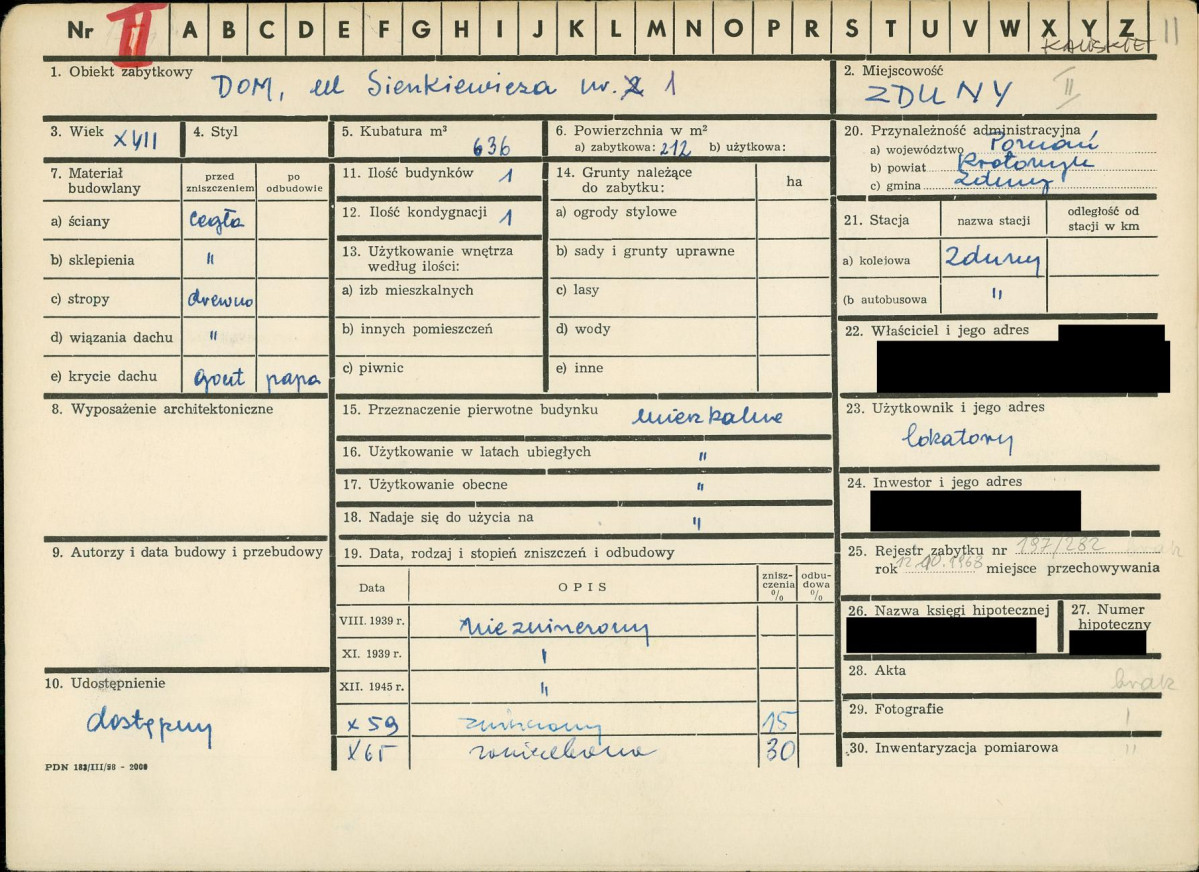 Nr II A B C D E F G H I J K L M N O P R S T U V W X Y Z II
KALISKIE
1. Obiekt zabytkowy DOM, ul Sienkiewicza nr. 1
2. Miejscowość
ZDUNY II
3. Wiek XVII
4. Styl
5. Kubatura m³
636
6. Powierzchnia w m²
a) zabytkowa: 212 b) użytkowa:
20. Przynależność administracyjna
a) województwo Poznań
b) powiat Krotoszyn
c) gmina Zduny
7. Materiał budowlany
przed zniszczeniem
po odbudowie
a) ściany cegła
b) sklepienia "
c) stropy drewno
d) wiązania dachu "
e) krycie dachu gont papa
8. Wyposażenie architektoniczne
9. Autorzy i data budowy i przebudowy
10. Udostępnienie
dostępny
PDN 183/III/58 - 2000
11. Ilość budynków 1
12. Ilość kondygnacji 1
13. Użytkowanie wnętrza
według ilości:
a) izb mieszkalnych
b) innych pomieszczeń
c) piwnic
14. Grunty należące
do zabytku:
ha
a) ogrody stylowe
b) sady i grunty uprawne
c) lasy
d) wody
e) inne
15. Przeznaczenie pierwotne budynku mieszkalne
16. Użytkowanie w latach ubiegłych "
17. Użytkowanie obecne "
18. Nadaje się do użycia na "
19. Data, rodzaj i stopień zniszczeń i odbudowy
Data
OPIS
znisz-
czenia
%
odbu-
dowa
%
VIII. 1939 r. niezniszczony
XI. 1939 r. "
XII. 1945 r. "
X 59 zniszczony 15
X 65 zaniedbane 30
21. Stacja
nazwa stacji
odległość od
stacji w km
a) kolejowa Zduny
(b autobusowa "
22. Właściciel i jego adres
23. Użytkownik i jego adres
lokatorzy
24. Inwestor i jego adres
25. Rejestr zabytku nr 197/282 brak
rok 12.10.1968 miejsce przechowywania
26. Nazwa księgi hipotecznej
27. Numer
hipoteczny
28. Akta brak
29. Fotografie
30. Inwentaryzacja pomiarowa "